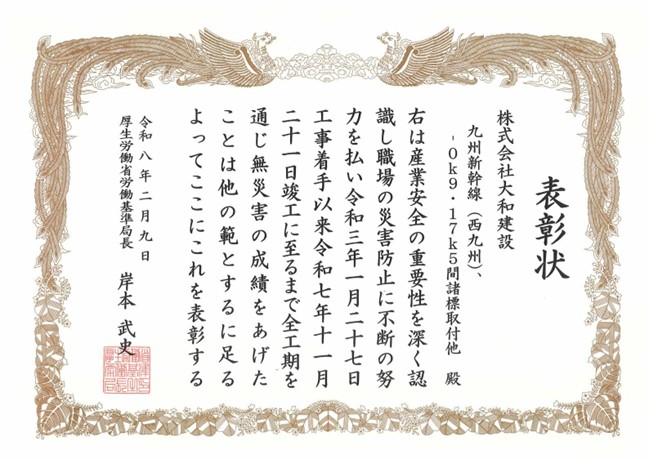 表彰状
株式会社大和建設
九州新幹線（西九州）、
-0k9・17k5間諸標取付他 殿
右は産業安全の重要性を深く認
識し職場の災害防止に不断の努
力を払い令和三年一月二十七日
工事着手以来令和七年十一月
二十一日竣工に至るまで全工期を
通じ無災害の成績をあげた
ことは他の範とするに足る
よってここにこれを表彰する
令和八年二月九日
厚生労働省労働基準局長 岸本武史